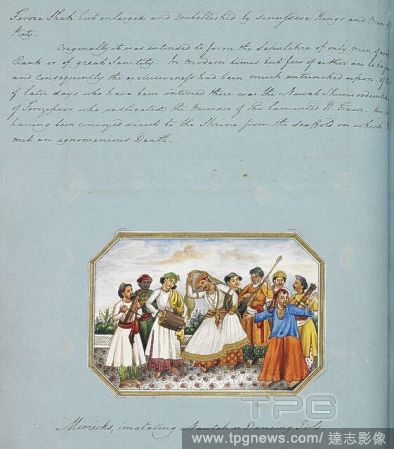 Feroze Shah but enlarged and embellished by successive Kings and Men of
Piety.
Originally it was intended to form the Sepulchre of only men of
Rank or of great Sanctity. In modern times but few of either are to be
and consequently the exclusiveness had been much entrenched upon of
of later days who have been interred there was the Nawab Shumsooddeen
of Ferozepoor who instigated the murder of the lamented W. Fraser. His
having been conveyed direct to the Shrine from the scaffold on which
met an ignominious Death.
TPG
Mimicks, imatating Nautch or Dancing Girls
www.tpgnews.com/達志影像